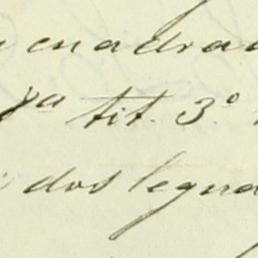 cuadrad
tit. 3.º
dos legua